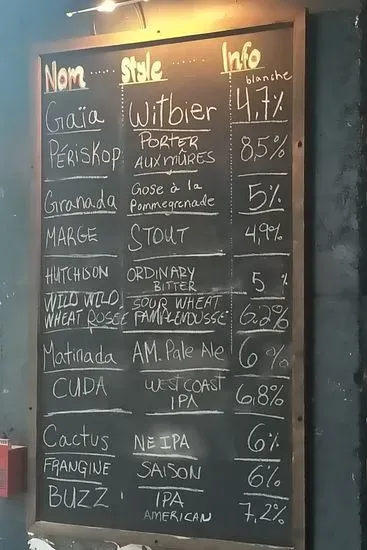 Nom ..... Style ..... Info
blanche
Gaïa Witbier 4,7%
PÉRISKOP PORTER AUX MÛRES 8,5%
Granada Gose à la Pommegrenade 5%
MARGE STOUT 4,9%
HUTCHISON ORDINARY BITTER 5 %
WILD WILD WHEAT ROSÉE SOUR WHEAT PAMPLEMOUSSE 6.2%
Matinada AM. Pale Ale 6 %
CUDA WEST COAST IPA 6,8%
Cactus NE IPA 6%
FRANGINE SAISON 6%
BUZZ IPA AMERICAN 7,2%